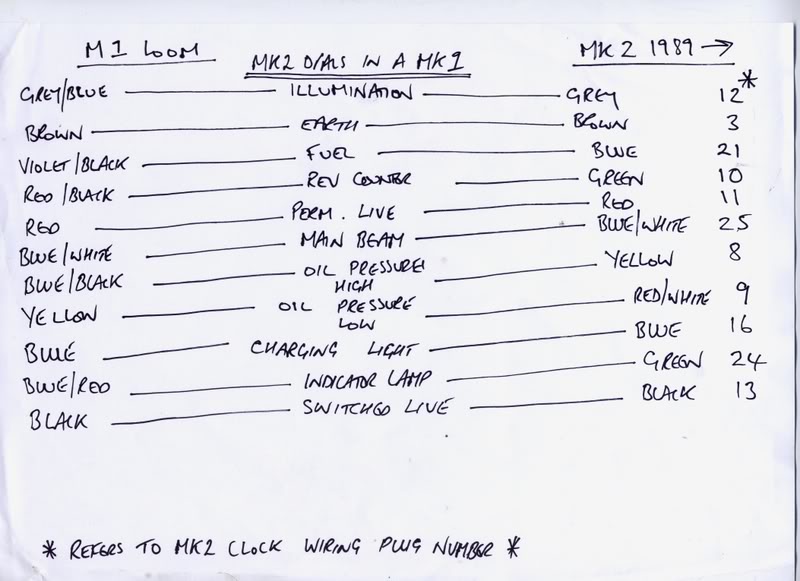 M1 LOOM MK2 DIALS IN A MK1 MK2 1989 →
GREY/BLUE ILLUMINATION GREY 12*
BROWN EARTH BROWN 3
VIOLET/BLACK FUEL BLUE 21
RED/BLACK REV COUNTER GREEN 10
RED PERM. LIVE RED 11
BLUE/WHITE MAIN BEAM BLUE/WHITE 25
BLUE/BLACK OIL PRESSURE HIGH YELLOW 8
YELLOW OIL PRESSURE LOW RED/WHITE 9
BLUE CHARGING LIGHT BLUE 16
BLUE/RED INDICATOR LAMP GREEN 24
BLACK SWITCHED LIVE BLACK 13
* REFERS TO MK2 CLOCK WIRING PLUG NUMBER *